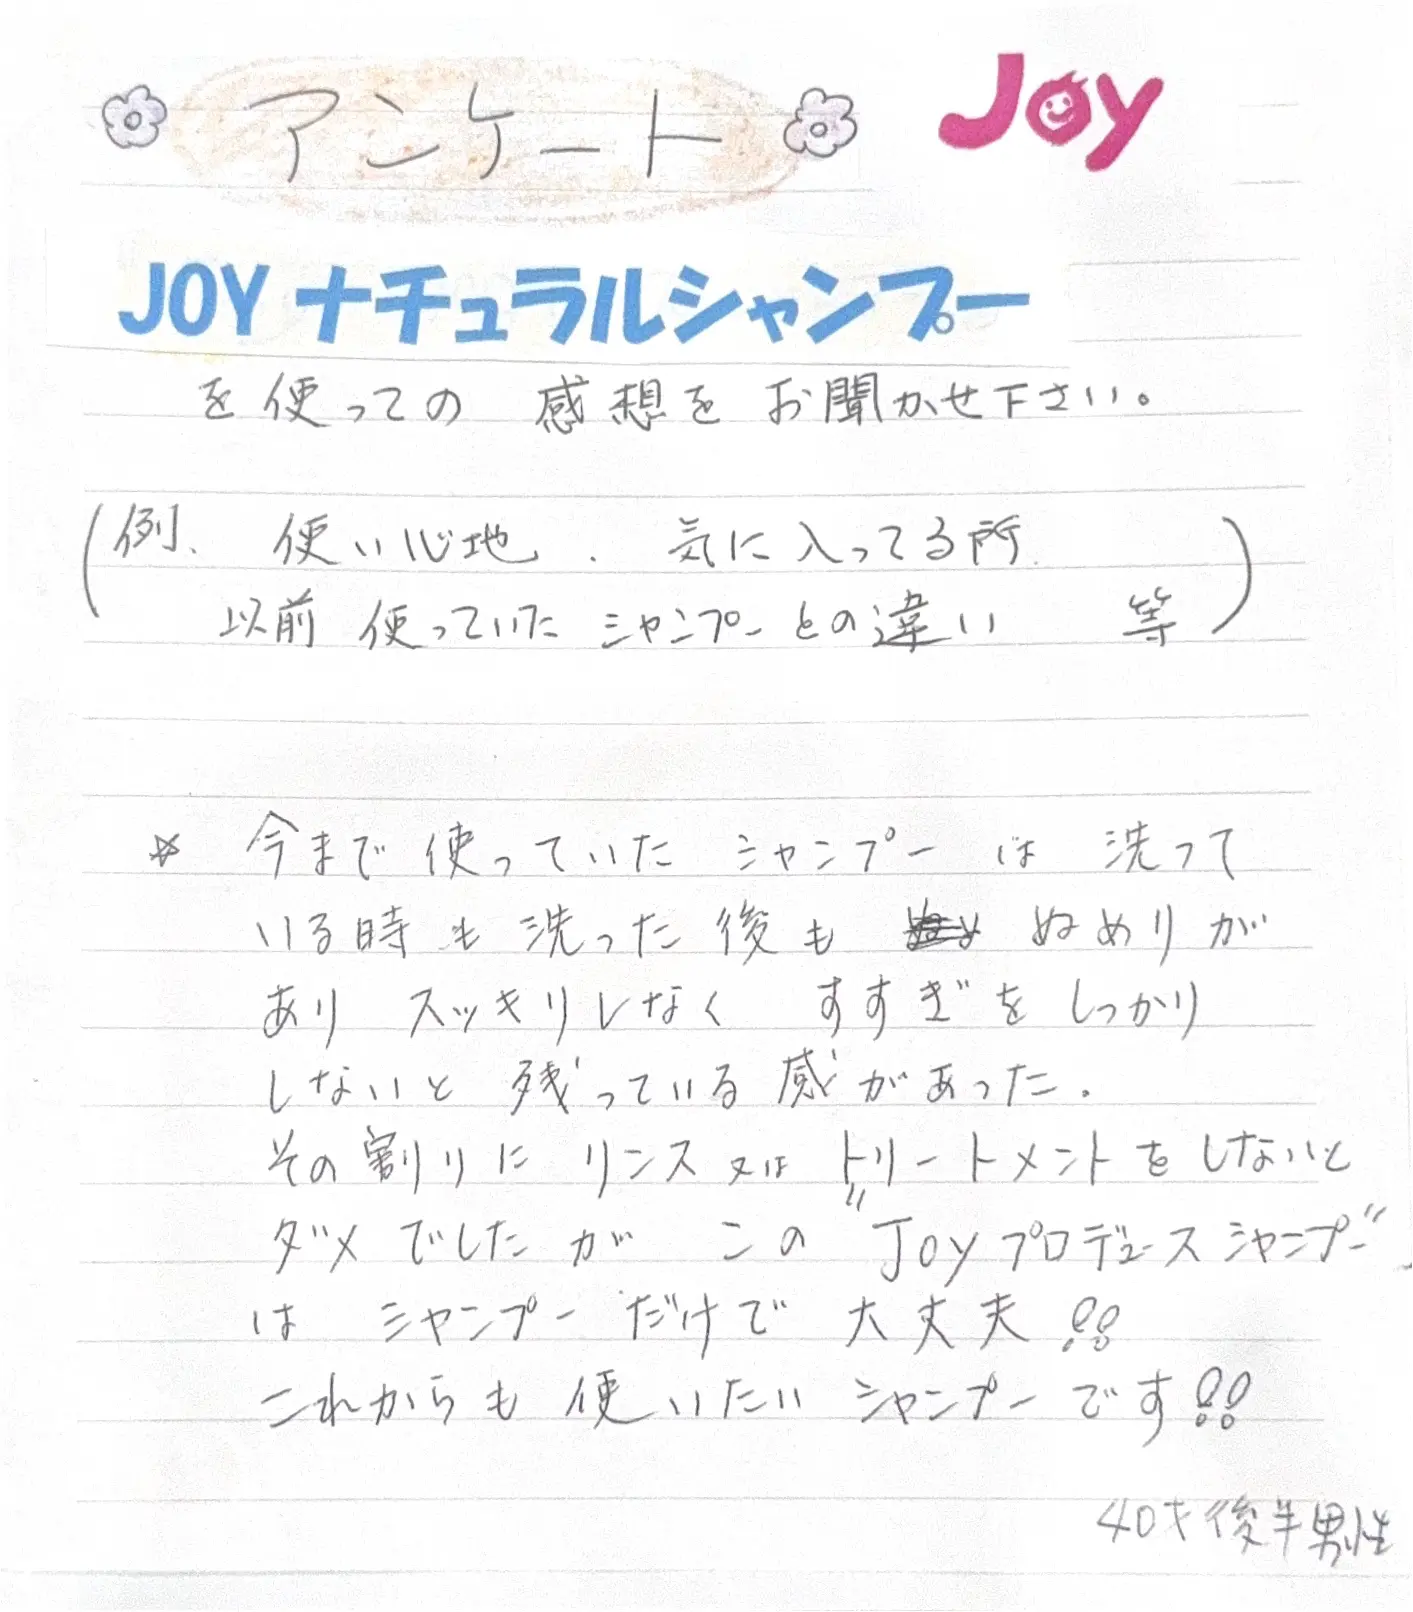 アンケート
Joy
JOY ナチュラルシャンプー
を使っての 感想を お聞かせ下さい。
(例. 使い心地 . 気に入ってる所.
以前 使っていた シャンプーとの違い 等)
☆ 今まで 使っていた シャンプー は 洗って
いる時も 洗った 後も ぬめりが
あり スッキリしなく すすぎを しっかり
しないと 残っている 感があった.
その割りに リンス 又は トリートメントを しないと
ダメでしたが この "Joyプロデュースシャンプー"
は シャンプーだけで 大丈夫!!
これからも 使いたい シャンプーです!!
40才後半男性